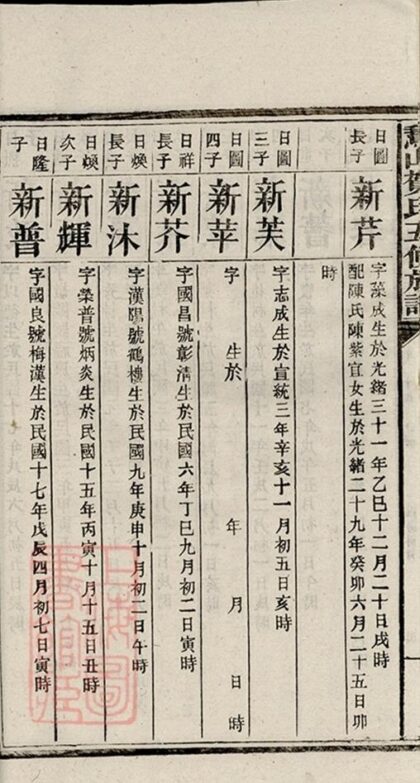 氏五修族譜
日圓
長子
新芹
字藻成生於光緒三十一年乙巳十二月二十日戌時
配陳氏陳紫官女生於光緒二十九年癸卯六月二十五日卯
時
日圓
三子
新芙
字志成生於宣統三年辛亥十一月初五日亥時
日圓
四子
新苹
字 生於 年 月 日 時
日祥
長子
新芥
字國昌號彰清生於民國六年丁巳九月初二日寅時
日煥
長子
新沐
字漢陽號鶴樓生於民國九年庚申十月初二日午時
日煥
次子
新輝
字榮普號炳炎生於民國十五年丙寅十月十五日丑時
日隆
子
新普
字國良號梅漢生於民國十七年戊辰四月初七日寅時